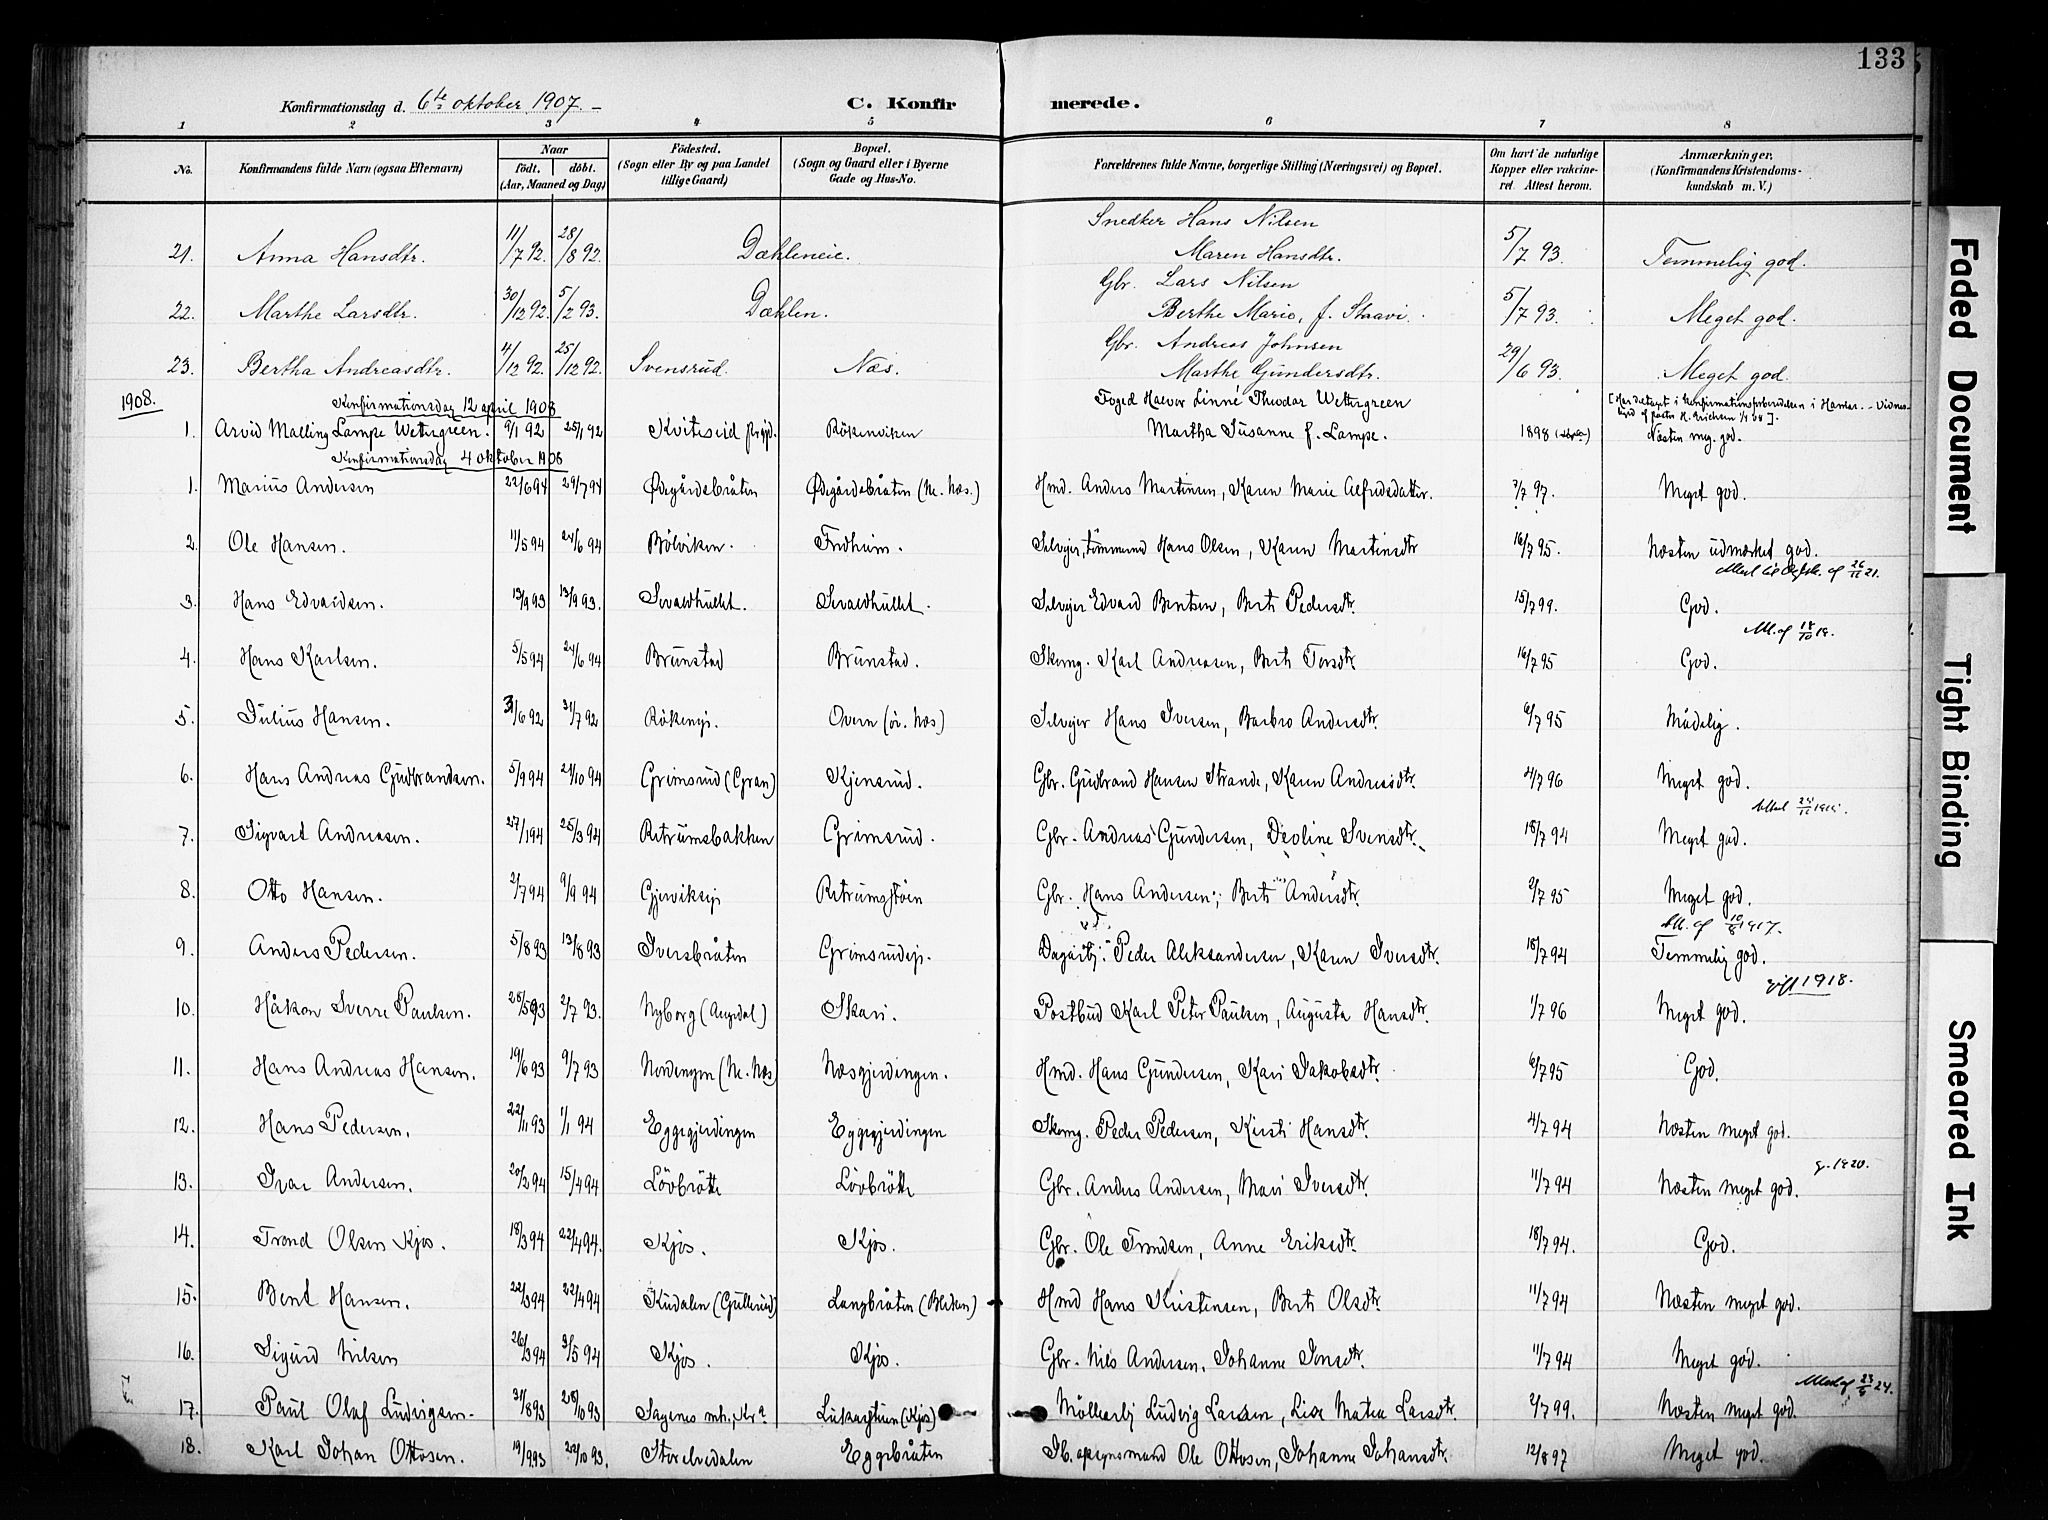 133
Konfirmationsdag d. 6te oktober 1907. –
C. Konfirmerede.
1 2 3 4 5 6 7 8
No. Konfirmandens fulde Navn (ogsaa Efternavn) Naar født. døbt. (Aar, Maaned og Dag) Fødested. (Sogn eller By og paa Landet tillige Gaard) Bopæl. (Sogn og Gaard eller i Byerne Gade og Hus-No. Forældrenes fulde Navne, borgerlige Stilling (Næringsvei) og Bopæl. Om havt de naturlige Kopper eller vakcineret. Attest herom. Anmærkninger. (Konfirmandens Kristendomskundskab m. V.)
21. Anna Hansdtr. 11/7 92. 28/8 92. Dæhleneie. Snedker Hans Nilsen Maren Hansdtr. 5/7 93. Temmelig god.
22. Marthe Larsdtr. 30/12 92. 5/2 93. Dæhlen. Gbr. Lars Nilsen Berthe Marie, f. Staavi. 5/7 93. Meget god.
23. Bertha Andreasdtr. 4/12 92. 25/12 92. Svensrud. Næs. Gbr. Andreas Johnsen Marthe Gundersdtr. 29/6 93. Meget god.
1908. Konfirmationsdag 12 april 1908
1. Arvid Malling Lampe Wettergreen. 9/1 92 25/1 92 Kviteseid prgjd. Røkenviken Foged Halvor Linné Theodor Wettergreen Martha Susanne f. Lampe. 1898 [Har deltaget i Konfirmationsforberedelsen i Hamar. – Vidnesbyrd af pastor H. Erichsen]. Næsten meg. god.
Konfirmationsdag 4 oktober 1908
1. Marius Andersen 22/6 94 29/7 94 Ødegårdsbråten Ødegårdsbråten (N. Næs.) Hmd. Anders Martinsen, Karen Marie Alfredsdatter. 3/7 97. Meget god.
2. Ole Hansen. 11/5 94 24/6 94 Bölviken. Fredheim. Selvejer, tömmermd Hans Olsen, Karen Martinsdtr 16/7 95. Næsten udmærket god.
3. Hans Edvardsen. 13/9 93 17/9 93. Sevaldhullet. Sevaldhullet. Selvejer Edvard Berntsen, Berte Pedersdtr. 15/7 99. God.
M. af 18/10 18.
4. Hans Karlsen. 5/5 94 24/6 94 Brunstad Brunstad. Skomg. Karl Andreasen, Berte Torsdtr. 16/7 95 God.
5. Julius Hansen. 3/6 92 31/7 92 Rökenejе. Overn (ö. Næs) Selvejer Hans Iversen, Barbro Andersdtr. 6/7 95 Mådelig.
6. Hans Andreas Gudbrandsen. 5/9 94 21/10 94 Grimsrud (Gran) Kjensrud. Gbr. Gudbrand Hansen Strande, Karen Andreasdtr. 4/7 96 Meget god.
7. Sigvart Andreasen. 27/1 94 25/3 94 Retrumsbakken Grimsrud. Gbr. Andreas Gundersen, Deoline Svensdtr. 18/7 94 Meget god.
8. Otto Hansen. 2/7 94 9/9 94 Gjerviksеје Retrumstöen Gbr. Hans Andersen, Berte Andersdtr. 2/7 95 Meget god.
M. af 10/8 1917.
9. Anders Pedersen. 5/8 93 13/8 93 Iversbråten Grimsrudeje. Dagarbj. Peder Aleksandersen, Karen Iversdtr. 18/7 94 Temmelig god.
gift 1918.
10. Håkon Sverre Paulsen. 28/5 93 2/7 93. Nyborg (Augedal) Skari. Postbud Karl Peter Paulsen, Augusta Hansdtr. 1/7 96 Meget god.
11. Hans Andreas Hansen. 19/6 93 9/7 93 Nordengen (N. Næs) Næsgjerdingen. Hmd. Hans Gundersen, Kari Jakobsdtr. 6/7 95 God.
12. Hans Pedersen. 22/11 93 1/1 94 Eggegjerdingen Eggegjerdingen Skomg. Peder Pedersen, Kirsti Hansdtr. 4/7 94 Næsten meget god.
g. 1920.
13. Ivar Andersen. 20/2 94 15/4 94 Lövbråtе Lövbråte Gbr. Anders Andersen, Mari Iversdtr. 11/7 94 Næsten meget god.
14. Trond Olsen Kjos. 18/3 94 22/4 94. Kjos. Kjos. Gbr. Ole Trondsen, Anne Eriksdtr. 18/7 94. God.
15. Bent Hansen. 22/3 94 22/4 94 Kudalen (Gullerud) Langbråten (Bleken) Hmd Hans Kristensen, Berte Olsdtr. 11/7 94 Næsten meget god.
16. Sigurd Nilsen 26/3 94 3/5 94 Kjos. Kjos. Gbr. Nils Andersen, Johanne Jensdtr. 11/7 94 Meget god.
17. Paul Olaf Ludvigsen. 31/8 93 28/10 93 Sagenes mh., Kr.a Lukasstuen (Kjos) Möllearbj Ludvig Larsen, Lise Matea Larsdtr. 2/7 99. Næsten meget god.
18. Karl Johan Ottosen. 19/9 93 22/10 93. Storelvedalen Eggebråten Jb. opsynsmand Ole Ottosen, Johanne Johansdtr. 12/8 97 Meget god.
Faded Document
Tight Binding
Smeared Ink